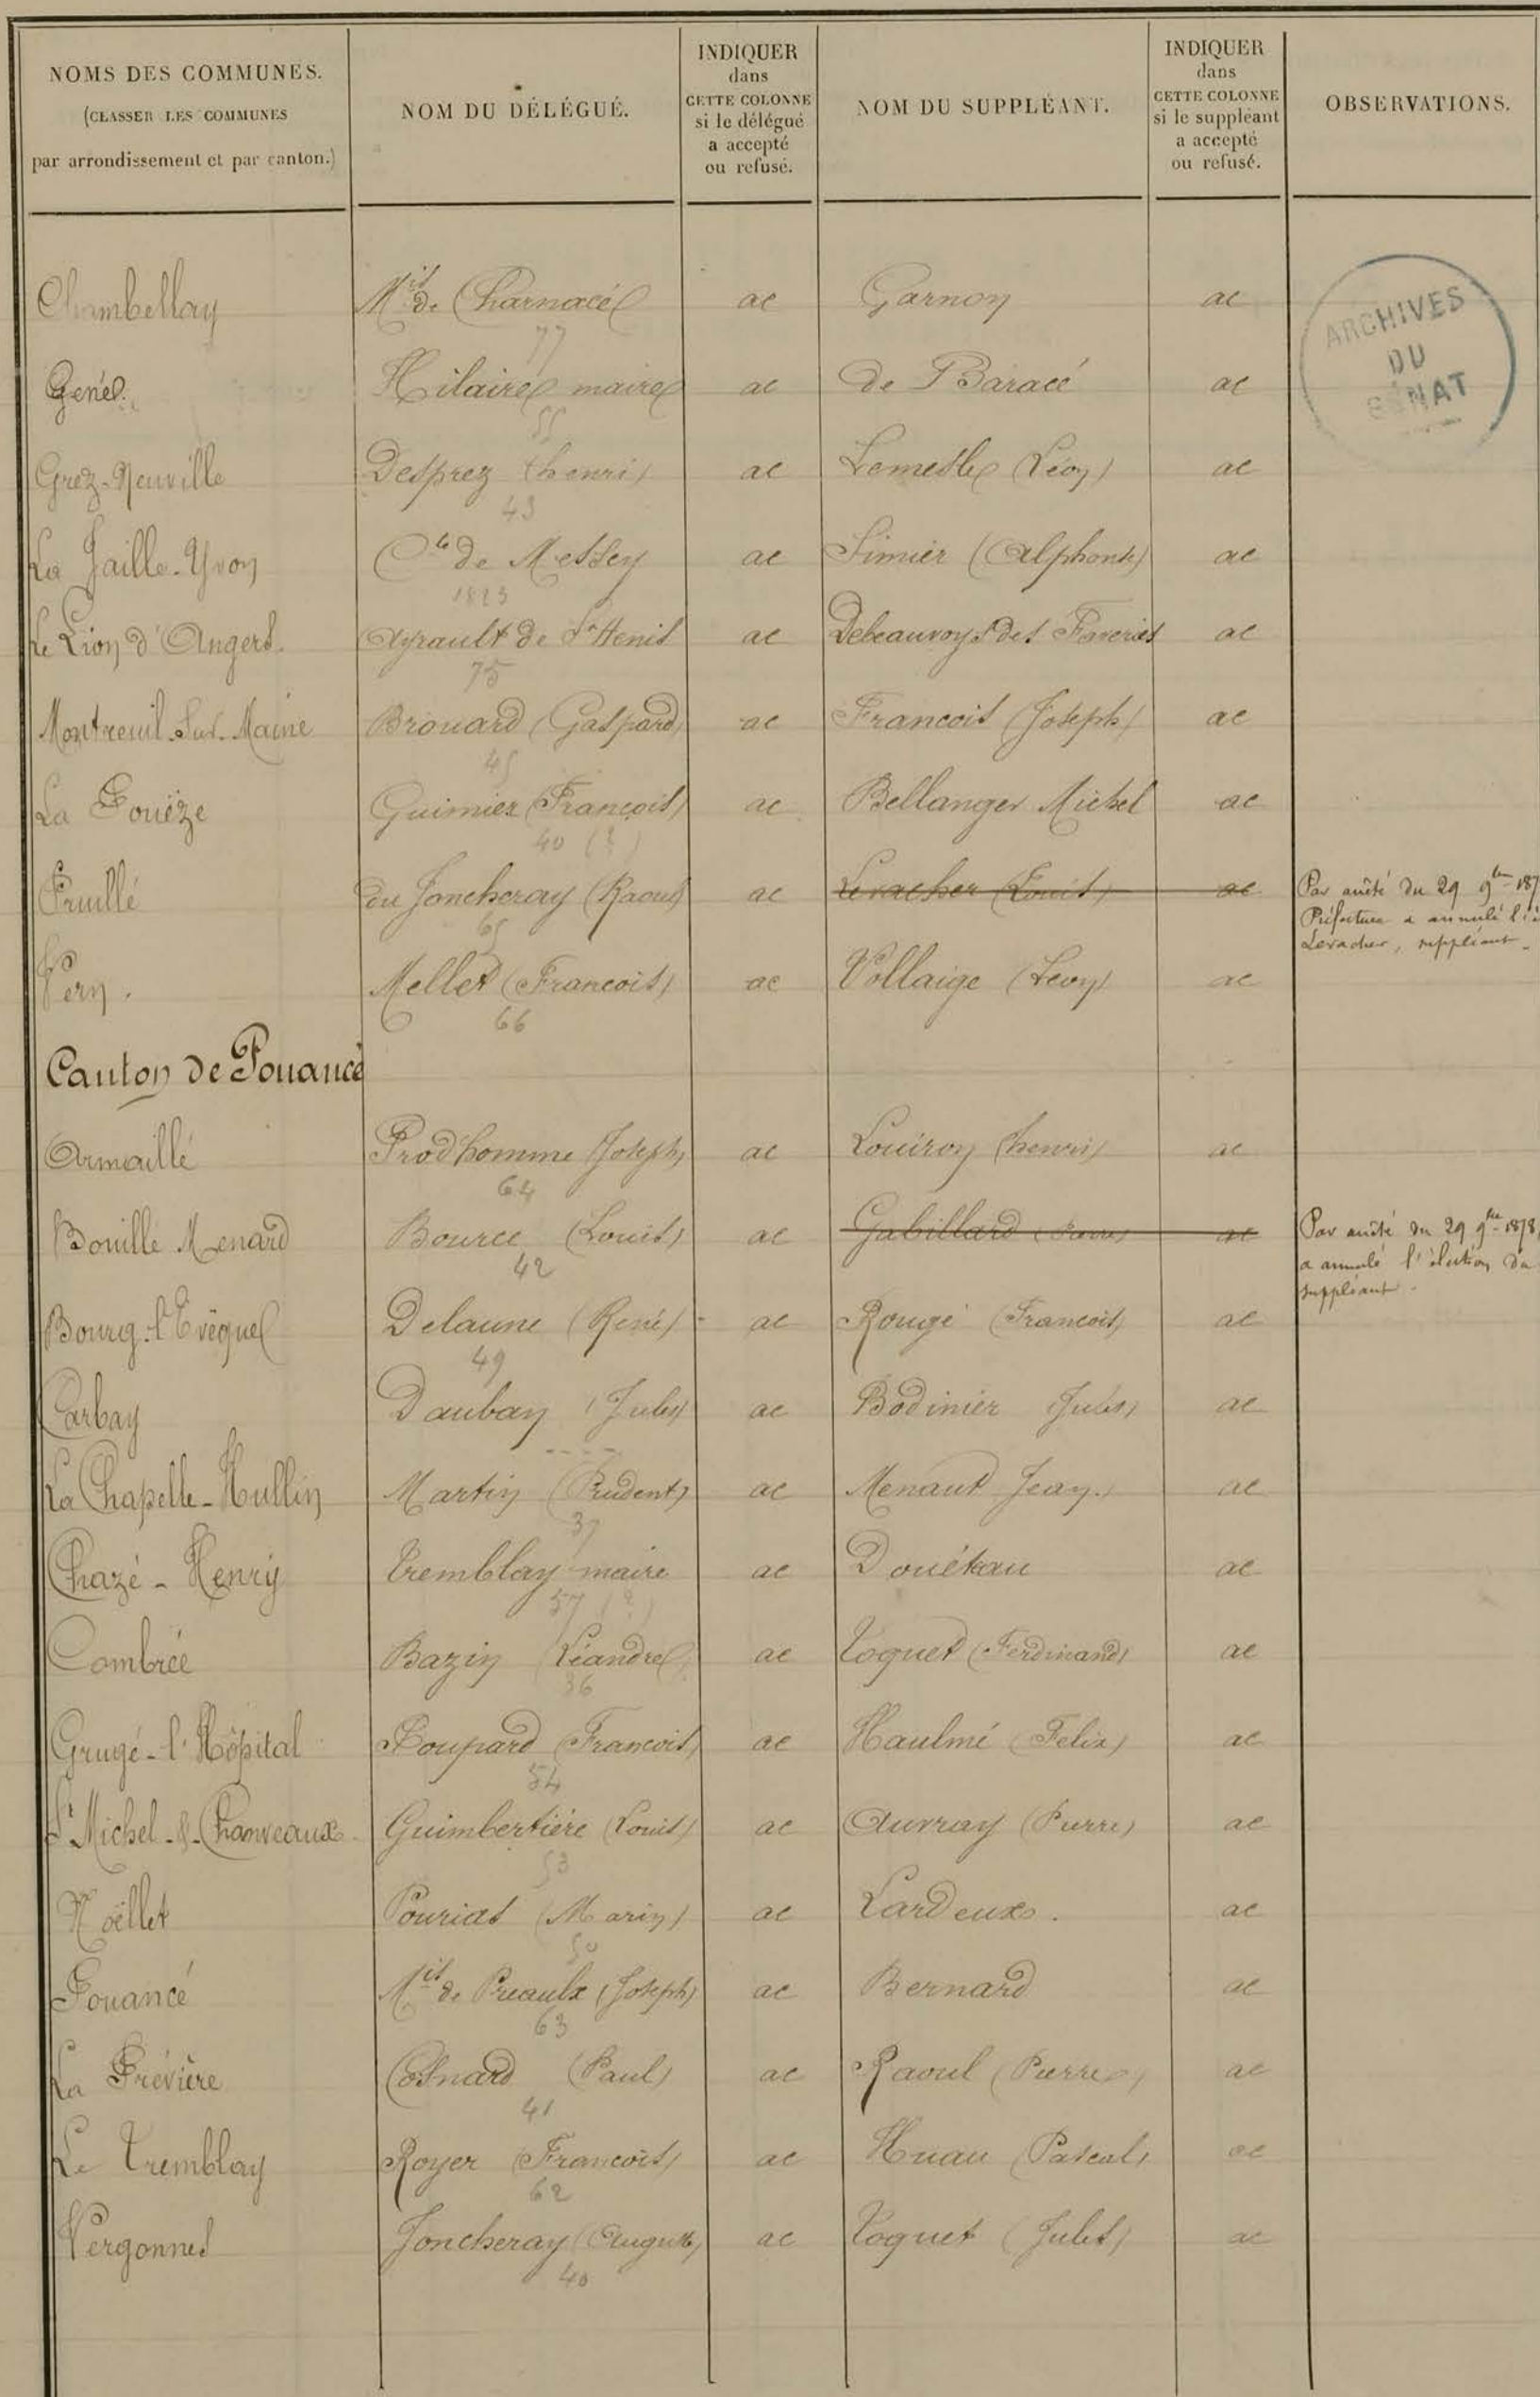 NOMS DES COMMUNES.
(CLASSER LES COMMUNES
par arrondissement et par canton.)
NOM DU DÉLÉGUÉ.
INDIQUER
dans
CETTE COLONNE
si le délégué
a accepté
ou refusé.
NOM DU SUPPLÉANT.
INDIQUER
dans
CETTE COLONNE
si le suppléant
a accepté
ou refusé.
OBSERVATIONS.
ARCHIVES
DU
SÉNAT
Chambellay Mis de Charnacé ac Garnon ac
77
Gené. Hilaire maire ac de Baracé ac
55
Grez-Neuville Desprez (henri) ac Lemesle (Léon) ac
43
La Jaille-Yvon Cte de Messey ac Simier (Alphonse) ac
1823
Le Lion d'Angers. Ayrault de St Henis ac Debeauvoys des Faveries ac
75
Montreuil-Sur-Maine Brouard (Gaspard) ac Francois (Joseph) ac
45
La Pouëze Guimier (François) ac Bellanger Michel ac
40 (?)
Pruillé du Joncheray (Raoul) ac Levacher (Louis) ac Par arrêté du 29 9bre 187
65 Préfecture a annulé l'é
Levacher, suppléant.
Vern. Mellet (Francois) ac Vollaige (Leon) ac
66
Canton de Pouancé
Armaillé Prodhomme (Joseph) ac Louiron (henri) ac
64
Bouillé Menard Bource (Louis) ac Gabillard (Pierre) ac Par arrêté du 29 9bre 1878,
42 a annulé l'élection du
suppléant.
Bourg-l'Evêque Delaune (René) ac Rougé (Francois) ac
49
Carbay Daubay (Jules) ac Bodinier Jules) ac
----
La Chapelle-Hullin Martin (Prudent) ac Menaut Jean.) ac
37
Chazé-Henry Tremblay maire ac Douétau ac
57 (?)
Combrée Bazin (Léandre) ac Toquet (Ferdinand) ac
36
Grugé-l'Hôpital Poupard (Francois) ac Haulmé (Felix) ac
54
St Michel-&-Chanveaux Guimbertière (Louis) ac Auvray (Pierre) ac
53
Noëllet Pourias (Marin) ac Lardeux. ac
50
Pouancé Mis de Preaulx (Joseph) ac Bernard ac
63
La Prévière Cosnard (Paul) ac Raoul (Pierre) ac
41
Le Tremblay Royer (Francois) ac Huau (Pascal) ac
62
Vergonnes Joncheray (Auguste) ac Toquet (Jules) ac
40